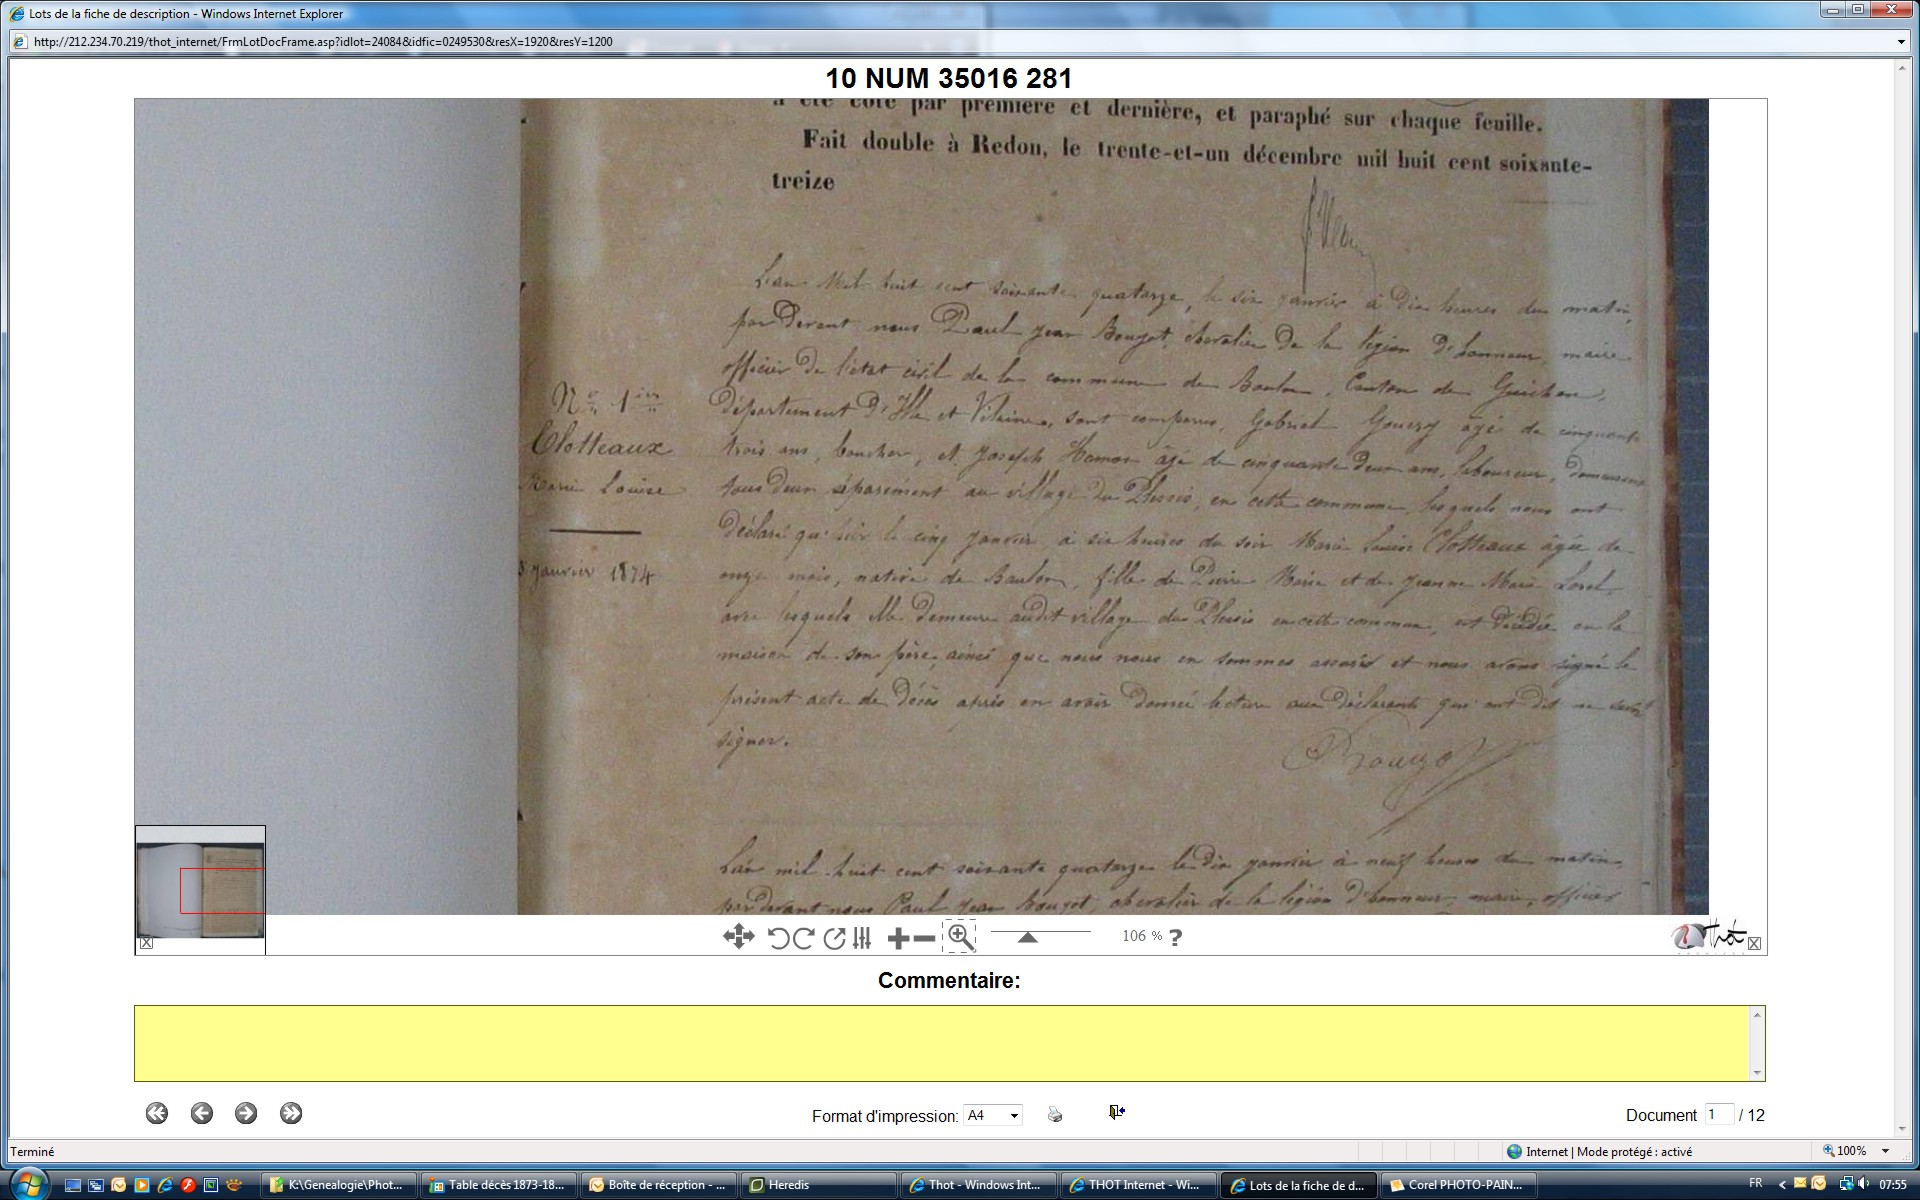 Lots de la fiche de description - Windows Internet Explorer
http://212.234.70.219/thot_internet/FrmLotDocFrame.asp?idlot=24084&idfic=0249530&resX=1920&resY=1200
10 NUM 35016 281
a été coté par première et dernière, et paraphé sur chaque feuille.
Fait double à Redon, le trente-et-un décembre mil huit cent soixante-
treize
L'an Mil huit cent soixante quatorze, le six janvier à Dix heures du matin,
par Devant nous Paul Jean Bouzot, chevalier De la légion D'honneur, maire
officier De l'état civil de la commune de Baulon, Canton de Guichen,
N° 1er
Département D'Ille et Vilaine, sont comparus, Gabriel âgé de cinquante
Clotteaux
trois ans, boucher, et Joseph Hamon âgé de cinquante deux ans, laboureur, demeurant
Marie Louise
tous Deux séparément au village du Plessis, en cette commune, lesquels nous ont
Déclaré qu'hier le cinq janvier, à six heures du soir Marie Louise Clotteaux âgée de
5 janvier 1874
onze mois, native de Baulon, fille de Pierre Marie et de Jeanne Marie Lorel,
avec lesquels elle Demeure audit village du Plessis en cette commune, est Décédée en la
maison de son père, ainsi que nous nous en sommes assuré et nous avons signé le
présent acte de Décès après en avoir Donné lecture aux Déclarants qui ont Dit ne savoir
signer.
Bouzot
L'an mil huit cent soixante quatorze le Dix janvier à neuf heures du matin
par devant nous Paul Jean Bouzot, chevalier de la légion D'honneur, maire, officier
106 % ?
Thot
Commentaire:
Format d'impression: A4
Document 1 / 12
Terminé
Internet | Mode protégé : activé
100%
K:\Genealogie\Phot...
Table décès 1873-18...
Boîte de réception - ...
Heredis
Thot - Windows Int...
THOT Internet - Wi...
Lots de la fiche de d...
Corel PHOTO-PAIN...
FR
07:55